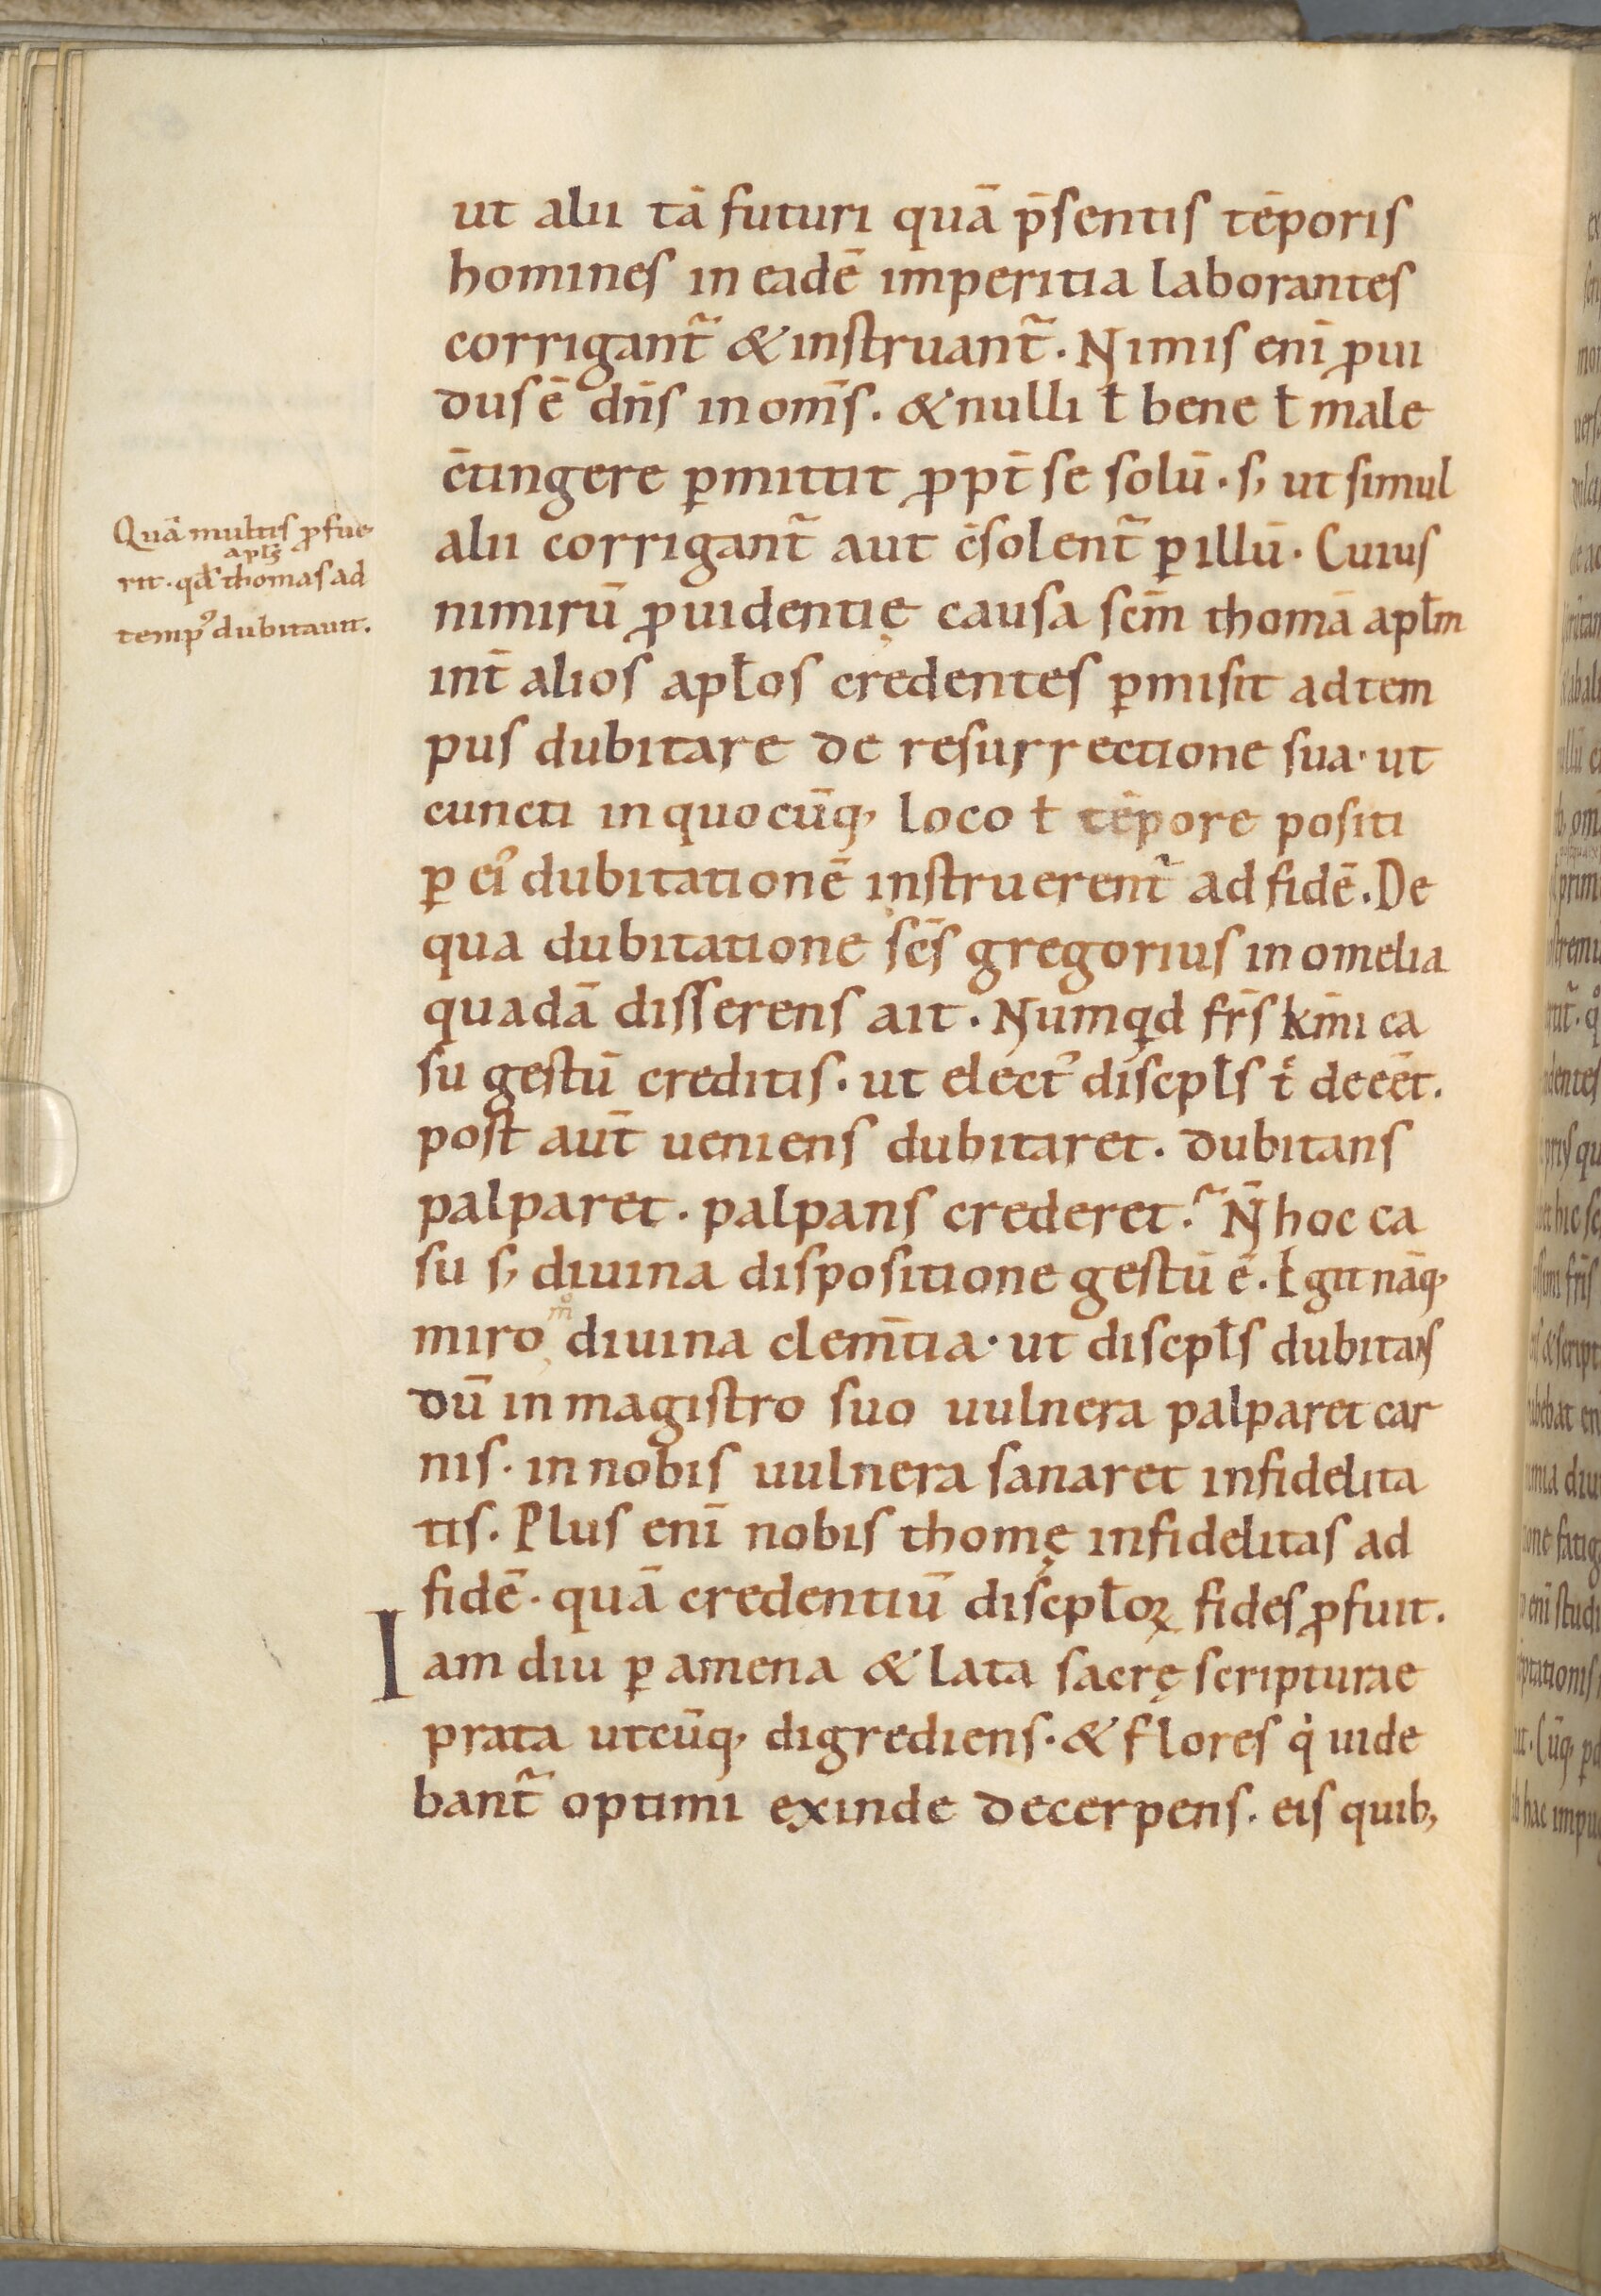 ut alii tā futuri quā p̄sentis tēporis
homines in eadē imperitia laborantes
corrigant᷑ & instruant᷑. Nimis enī ꝓui
dus ē dn̄s in om̄s. & nulli ł bene ł male
c̄tingere ꝑmittit ꝓpt̄ se solū. s; ut simul
alii corrigant᷑ aut c̄solent᷑ ꝑ illū. Cuius
nimirū ꝓuidentię causa scm̄ thomā apłm
int̄ alios apłos credentes ꝑmisit ad tem
pus dubitare de resurrectione sua. ut
cuncti in quocūq; loco ł tēpore positi
ꝑ ei᾽ dubitationē instruerent᷑ ad fidē. De
qua dubitatione sc̄s gregorius in omelia
quadā disserens ait. Numqd fr̄s km̄i ca
su gestū creditis. ut elect᾽ discipłs t̄ deeēt.
post aut̄ ueniens dubitaret. dubitans
palparet. palpans crederet? N̄ hoc ca
su s; diuina dispositione gestū ē. Egit nāq;
miro m̊ diuina clem̄tia. ut discipłs dubitans
dū in magistro suo uulnera palparet car
nis. in nobis uulnera sanaret infidelita
tis. Plus enī nobis thomę infidelitas ad
fidē. quā credentiū discipłoꝝ fides ꝓfuit.
Iam diu ꝑ amena & lata sacrę scripturae
prata utcūq; digrediens. & flores qͥ uide
bant᷑ optimi exinde decerpens. eis quib;
Quā multis ꝓfue
rit. qd̄ apłs thomas ad
temp᾽ dubitauit.